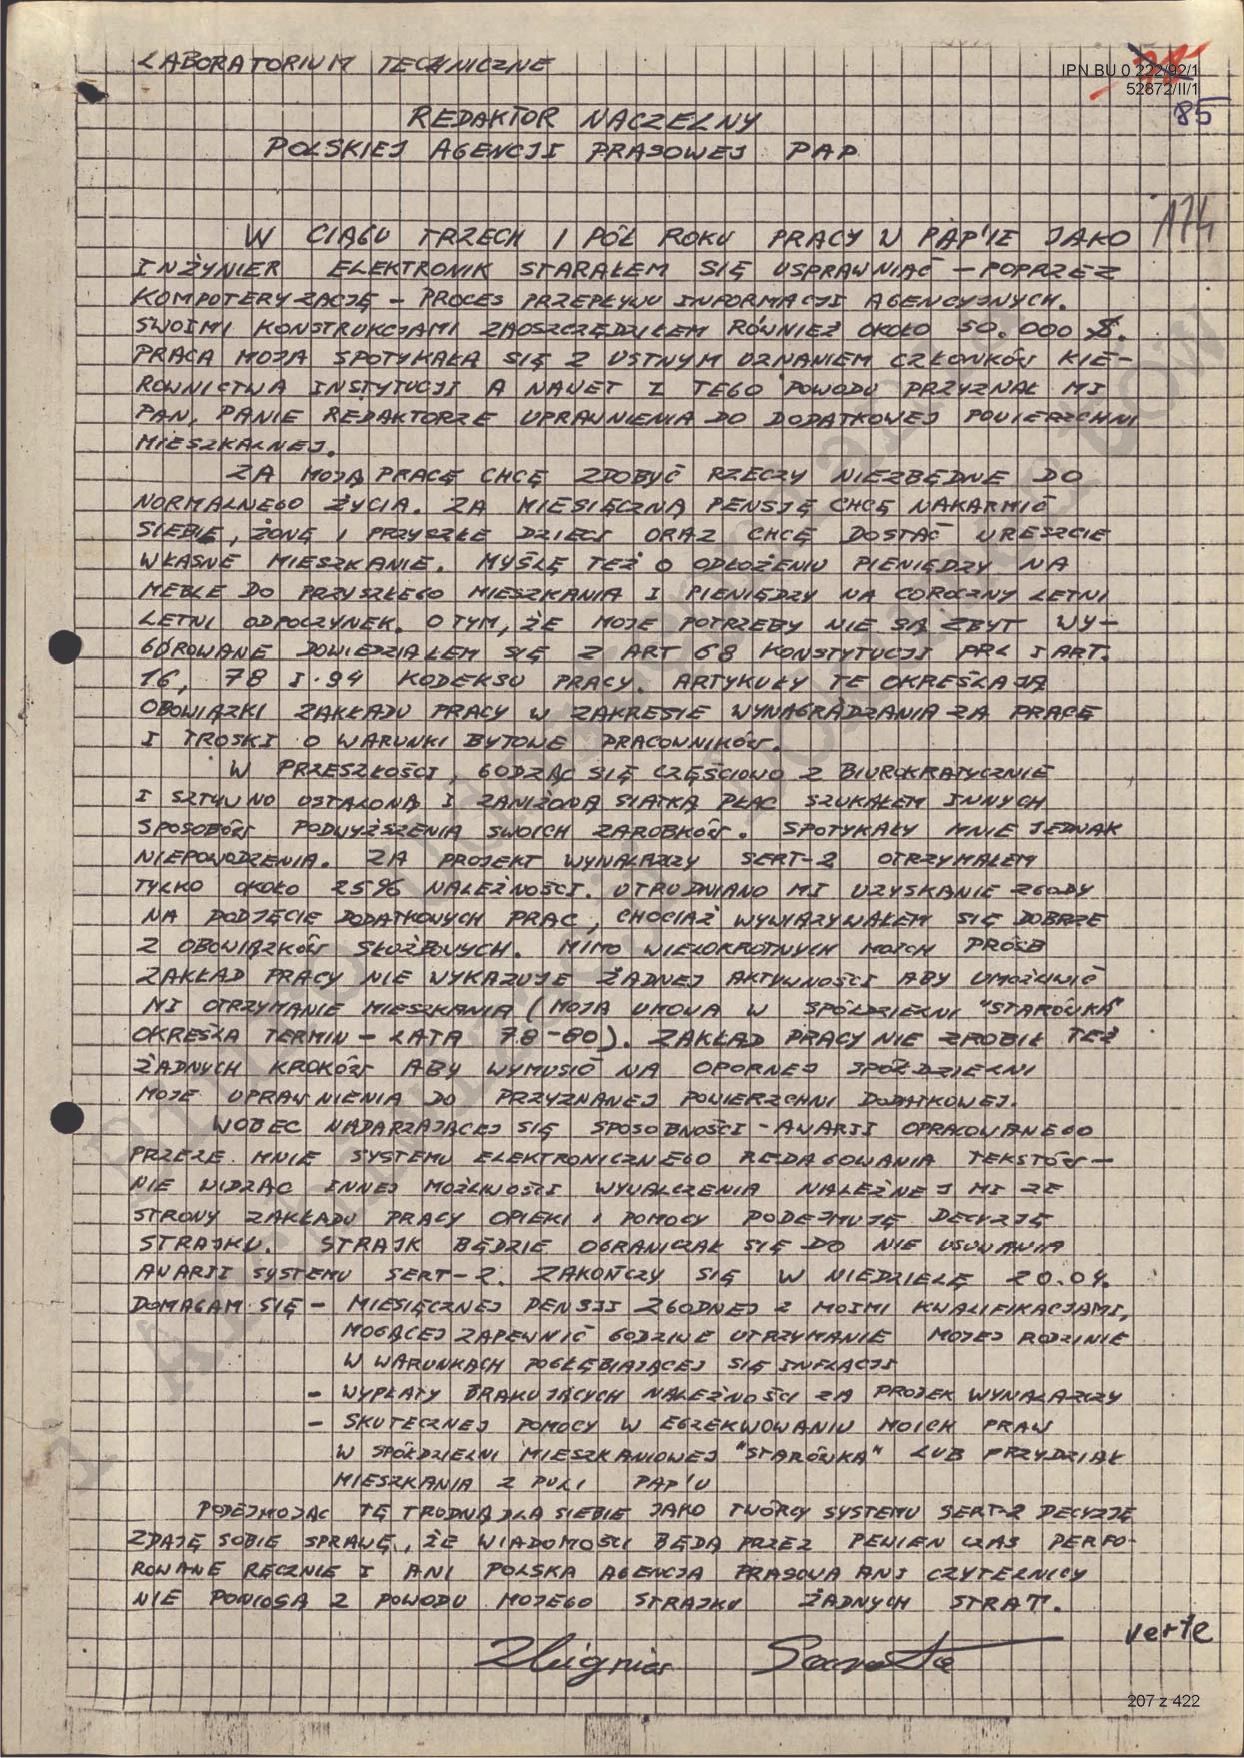 LABORATORIUM TECHNICZNE
IPN BU 0 222/92/1
52872/II/1
85
REDAKTOR NACZELNY
POLSKIEJ AGENCJI PRASOWEJ PAP
174
W CIĄGU TRZECH I PÓŁ ROKU PRACY W PAP'IE JAKO
INŻYNIER ELEKTRONIK STARAŁEM SIĘ USPRAWNIAĆ – POPRZEZ
KOMPUTERYZACJĘ – PROCES PRZEPŁYWU INFORMACJI AGENCYJNYCH.
SWOIMI KONSTRUKCJAMI ZAOSZCZĘDZIŁEM RÓWNIEŻ OKOŁO 50.000 $.
PRACA MOJA SPOTYKAŁA SIĘ Z USTNYM UZNANIEM CZŁONKÓW KIE-
ROWNICTWA INSTYTUCJI A NAWET Z TEGO POWODU PRZYZNAŁ MI
PAN, PANIE REDAKTORZE UPRAWNIENIA DO DODATKOWEJ POWIERZCHNI
MIESZKALNEJ.
ZA MOJĄ PRACĘ CHCĘ ZDOBYĆ RZECZY NIEZBĘDNE DO
NORMALNEGO ŻYCIA. ZA MIESIĘCZNĄ PENSJĘ CHCĘ NAKARMIĆ
SIEBIE, ŻONĘ I PRZYSZŁE DZIECI ORAZ CHCĘ DOSTAĆ WRESZCIE
WŁASNE MIESZKANIE. MYŚLĘ TEŻ O ODŁOŻENIU PIENIĘDZY NA
MEBLE DO PRZYSZŁEGO MIESZKANIA I PIENIĘDZY NA COROCZNY LETNI
LETNI ODPOCZYNEK. O TYM, ŻE MOJE POTRZEBY NIE SĄ ZBYT WY-
GÓROWANE DOWIEDZIAŁEM SIĘ Z ART 68 KONSTYTUCJI PRL I ART.
16, 78 I 94 KODEKSU PRACY. ARTYKUŁY TE OKREŚLAJĄ
OBOWIĄZKI ZAKŁADU PRACY W ZAKRESIE WYNAGRADZANIA ZA PRACĘ
I TROSKI O WARUNKI BYTOWE PRACOWNIKÓW.
W PRZESZŁOŚCI, GODZĄC SIĘ CZĘŚCIOWO Z BIUROKRATYCZNIE
I SZTYWNO USTALONĄ I ZANIŻONĄ SIATKĄ PŁAC SZUKAŁEM INNYCH
SPOSOBÓW PODWYŻSZENIA SWOICH ZAROBKÓW. SPOTYKAŁY MNIE JEDNAK
NIEPOWODZENIA. ZA PROJEKT WYNALAZCZY SERT-2 OTRZYMAŁEM
TYLKO OKOŁO 25% NALEŻNOŚCI. UTRUDNIANO MI UZYSKANIE ZGODY
NA PODJĘCIE DODATKOWYCH PRAC, CHOCIAŻ WYWIĄZYWAŁEM SIĘ DOBRZE
Z OBOWIĄZKÓW SŁUŻBOWYCH. MIMO WIELOKROTNYCH MOICH PRÓŚB
ZAKŁAD PRACY NIE WYKAZUJE ŻADNEJ AKTYWNOŚCI ABY UMOŻLIWIĆ
MI OTRZYMANIE MIESZKANIA (MOJA UMOWA W SPÓŁDZIELNI "STARÓWKA"
OKREŚLA TERMIN – LATA 78-80). ZAKŁAD PRACY NIE ZROBIŁ TEŻ
ŻADNYCH KROKÓW ABY WYMUSIĆ NA OPORNEJ SPÓŁDZIELNI
MOJE UPRAWNIENIA DO PRZYZNANEJ POWIERZCHNI DODATKOWEJ.
WOBEC NADARZAJĄCEJ SIĘ SPOSOBNOŚCI – AWARII OPRACOWANEGO
PRZEZE MNIE SYSTEMU ELEKTRONICZNEGO REDAGOWANIA TEKSTÓW –
NIE WIDZĄC INNEJ MOŻLIWOŚCI WYWALCZENIA NALEŻNEJ MI ZE
STRONY ZAKŁADU PRACY OPIEKI I POMOCY PODEJMUJĘ DECYZJĘ
STRAJKU. STRAJK BĘDZIE OGRANICZAŁ SIĘ DO NIE USUWANIA
AWARII SYSTEMU SERT-2. ZAKOŃCZY SIĘ W NIEDZIELĘ 20.04.
DOMAGAM SIĘ – MIESIĘCZNEJ PENSJI ZGODNEJ Z MOIMI KWALIFIKACJAMI,
MOGĄCEJ ZAPEWNIĆ GODZIWE UTRZYMANIE MOJEJ RODZINIE
W WARUNKACH POGŁĘBIAJĄCEJ SIĘ INFLACJI
– WYPŁATY BRAKUJĄCYCH NALEŻNOŚCI ZA PROJEK WYNALAZCZY
– SKUTECZNEJ POMOCY W EGZEKWOWANIU MOICH PRAW
W SPÓŁDZIELNI MIESZKANIOWEJ "STARÓWKA" LUB PRZYDZIAŁ
MIESZKANIA Z PULI PAP'U
PODEJMUJĄC TĘ TRUDNĄ DLA SIEBIE JAKO TWÓRCY SYSTEMU SERT-2 DECYZJĘ
ZDAJĘ SOBIE SPRAWĘ, ŻE WIADOMOŚCI BĘDĄ PRZEZ PEWIEN CZAS PERFO-
ROWANE RĘCZNIE I ANI POLSKA AGENCJA PRASOWA ANI CZYTELNICY
NIE PONIOSĄ Z POWODU MOJEGO STRAJKU ŻADNYCH STRAT.
verte
Zbigniew
207 z 422